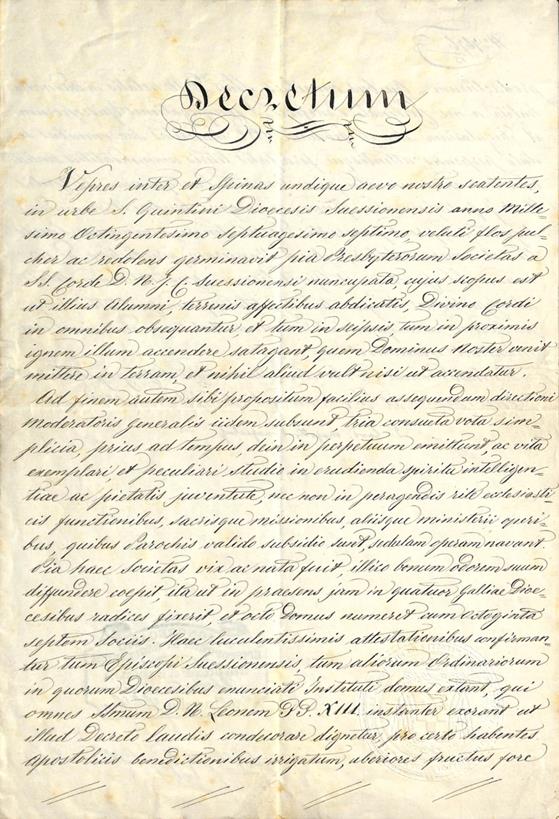 Decretum
Vepres inter et Spinas undique aevo nostro scatentes,
in urbe S. Quintini Dioecesis Suessionensis anno Mille-
simo Octingentesimo Septuagesimo septimo, veluti flos pul-
cher ac redolens germinavit pia Presbyterorum Societas a
SS. Corde D. N. J. C. Suessionensi nuncupata, cujus scopus est
ut illius Alumni, terrenis affectibus abdicatis, Divino Cordi
in omnibus obsequantur et tum in seipsis tum in proximis
ignem illum accendere satagant, quem Dominus Noster venit
mittere in terram, et nihil aliud vult nisi ut accendatur.
Ad finem autem sibi propositum facilius assequendum directioni
Moderatoris generalis iidem subsunt, tria consueta vota sim-
plicia, prius ad tempus dein in perpetuum emittunt, ac vita
exemplari, et peculiari studio in erudienda spiritu intelligen-
tiae ac pietatis juventute, nec non in peragendis rite ecclesiasti-
cis functionibus, sacrisque missionibus, aliisque ministerii operi-
bus, quibus Parochis valido subsidio sunt, sedulam operam navant.
Pia haec Societas vix ac nata fuit, illico bonum odorem suum
diffundere coepit ita ut in praesens jam in quatuor Galliae Dioe-
cesibus radices fixerit, et octo domus numeret cum octoginta
septem Sociis. Haec luculentissimis attestationibus confirman-
tur tum Episcopi Suessionensis, tum aliorum Ordinariorum
in quorum Dioecesibus enunciati Instituti domus extant, qui
omnes SSmum D. N. Leonem P P. XIII instanter exorant ut
illud Decreto laudis condecorare dignetur, pro certo habentes
Apostolicis benedictionibus irrigatum, uberiores fructus fore